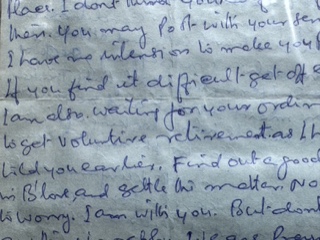 place. I dont
then. You may post with your
I have no intension to make you
If you find it difficult get off
I am also waiting for your
to get voluntive retirement as I h
told you earlier. Find out a good
in B'lore, and settle the matter. No
to worry. I am with you. But dont